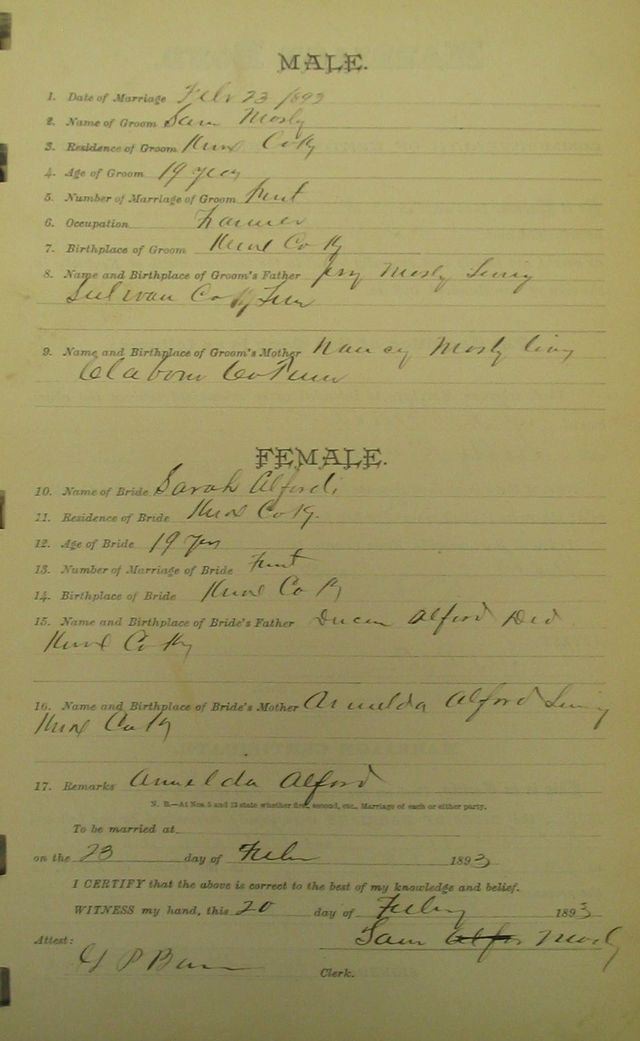 MALE.
1. Date of Marriage Feb 23 1893
2. Name of Groom Sam Mosly
3. Residence of Groom Knox Co Ky
4. Age of Groom 19 years
5. Number of Marriage of Groom First
6. Occupation Farmer
7. Birthplace of Groom Knox Co Ky
8. Name and Birthplace of Groom's Father Mosly Living
Sulivan Co Ky Tenn
9. Name and Birthplace of Groom's Mother Nancy Mosly living
Claborn Co Tenn
FEMALE.
10. Name of Bride Sarah Alford
11. Residence of Bride Knox Co Ky.
12. Age of Bride 19 yrs
13. Number of Marriage of Bride First
14. Birthplace of Bride Knox Co Ky
15. Name and Birthplace of Bride's Father Alford Ded
Knox Co Ky
16. Name and Birthplace of Bride's Mother Armelda Alford Living
Knox Co Ky
17. Remarks Armelda Alford
N. B.—At Nos. 5 and 13 state whether first, second, etc., Marriage of each or either party.
To be married at
on the 23 day of Feb 1893
I CERTIFY that the above is correct to the best of my knowledge and belief.
WITNESS my hand, this 20 day of Feby 1893
Sam Mosly
Attest:
Clerk.